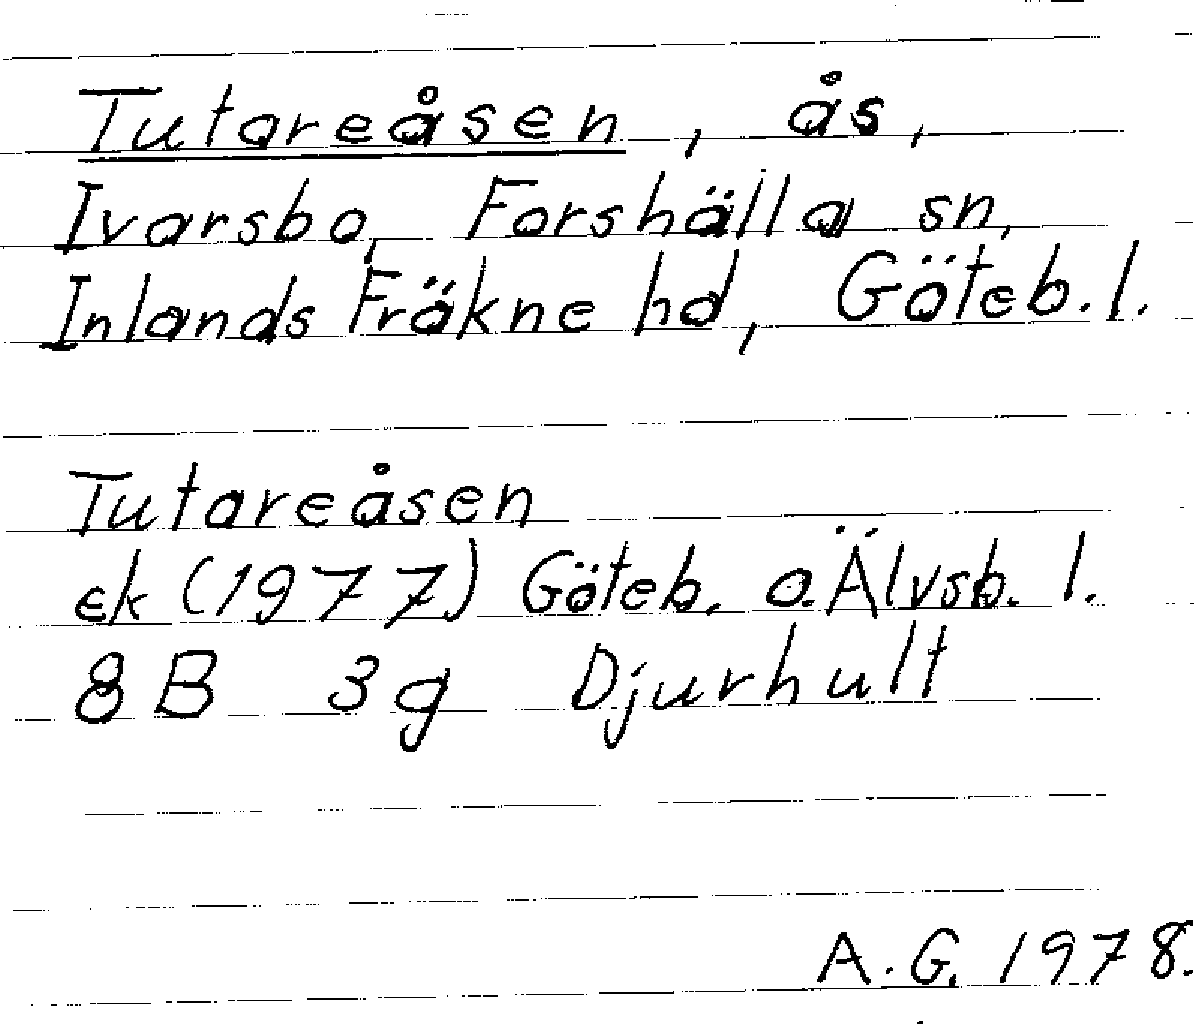 Tutareåsen, ås,
Ivarsbo, Forshälla sn,
Inlands Fräkne hd, Göteb. l.
Tutareåsen
ek (1977) Göteb. o. Älvsb. l.
8B 3g Djurhult
A.G. 1978.